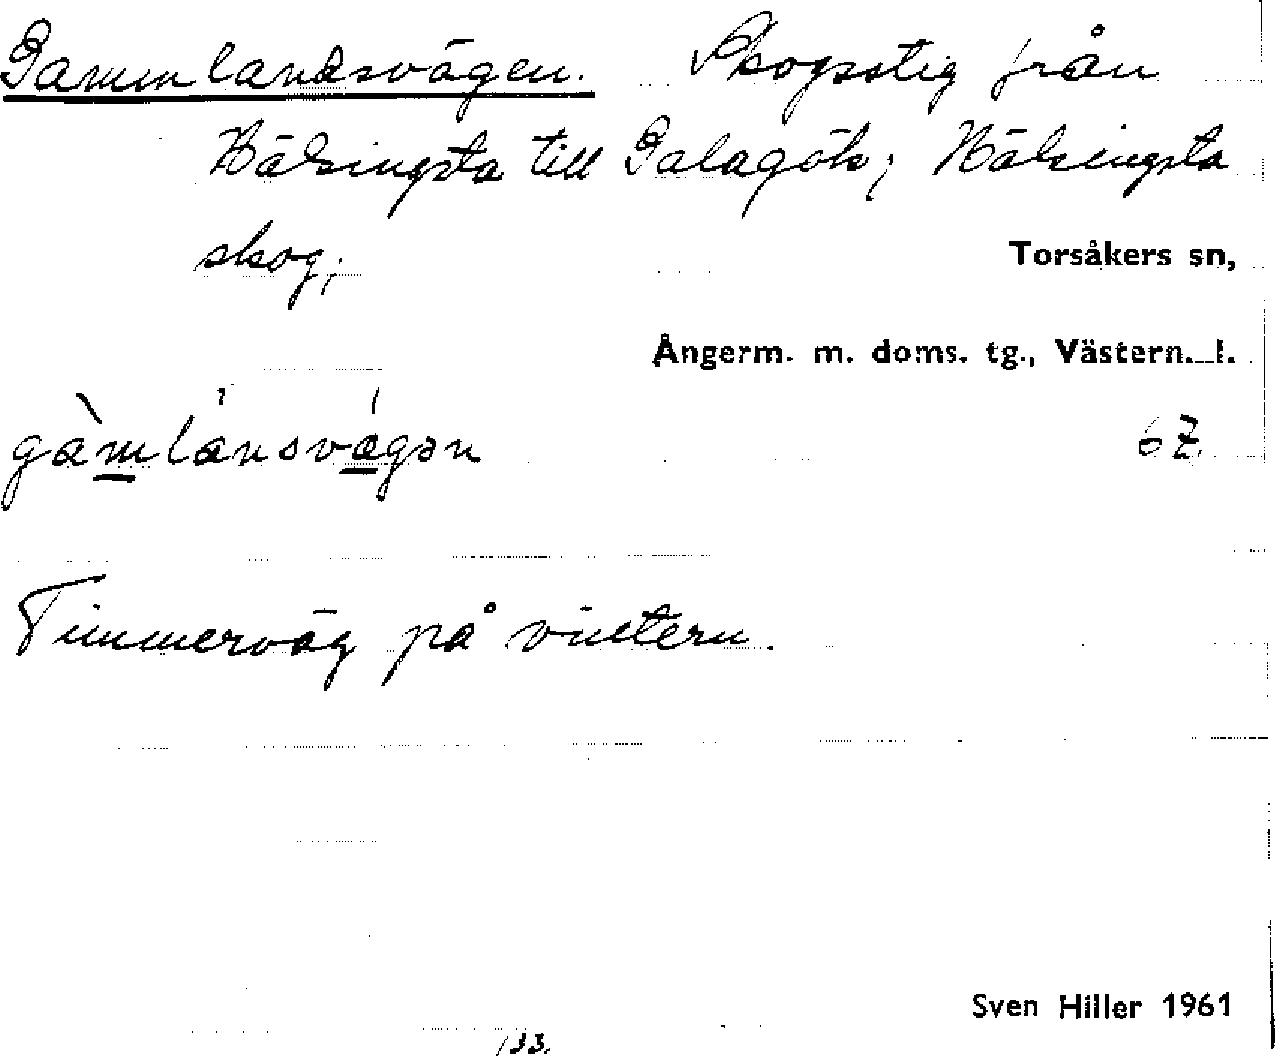 Gammlandsvägen. Skogsstig från
Hälsingsta till Galagök; Hälsingsta
skog;
Torsåkers sn,
Ångerm. m. doms. tg., Västern. l.
gàmlánsvágən
6 Z.
Timmerväg på vintern.
Sven Hiller 1961